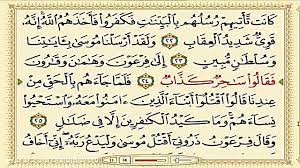 كَانَت تَّأْتِيهِمْ رُسُلُهُم بِالْبَيِّنَاتِ فَكَفَرُوا فَأَخَذَهُمُ اللَّهُ إِنَّهُ
قَوِيٌّ شَدِيدُ الْعِقَابِ ٢٢ وَلَقَدْ أَرْسَلْنَا مُوسَىٰ بِآيَاتِنَا
وَسُلْطَانٍ مُّبِينٍ ٢٣ إِلَىٰ فِرْعَوْنَ وَهَامَانَ وَقَارُونَ
فَقَالُوا سَاحِرٌ كَذَّابٌ ٢٤ فَلَمَّا جَاءَهُم بِالْحَقِّ مِنْ
عِندِنَا قَالُوا اقْتُلُوا أَبْنَاءَ الَّذِينَ آمَنُوا مَعَهُ وَاسْتَحْيُوا
نِسَاءَهُمْ وَمَا كَيْدُ الْكَافِرِينَ إِلَّا فِي ضَلَالٍ ٢٥
وَقَالَ فِرْعَوْنُ ذَرُونِي أَقْتُلْ مُوسَىٰ وَلْيَدْعُ رَبَّهُ إِنِّي أَخَافُ